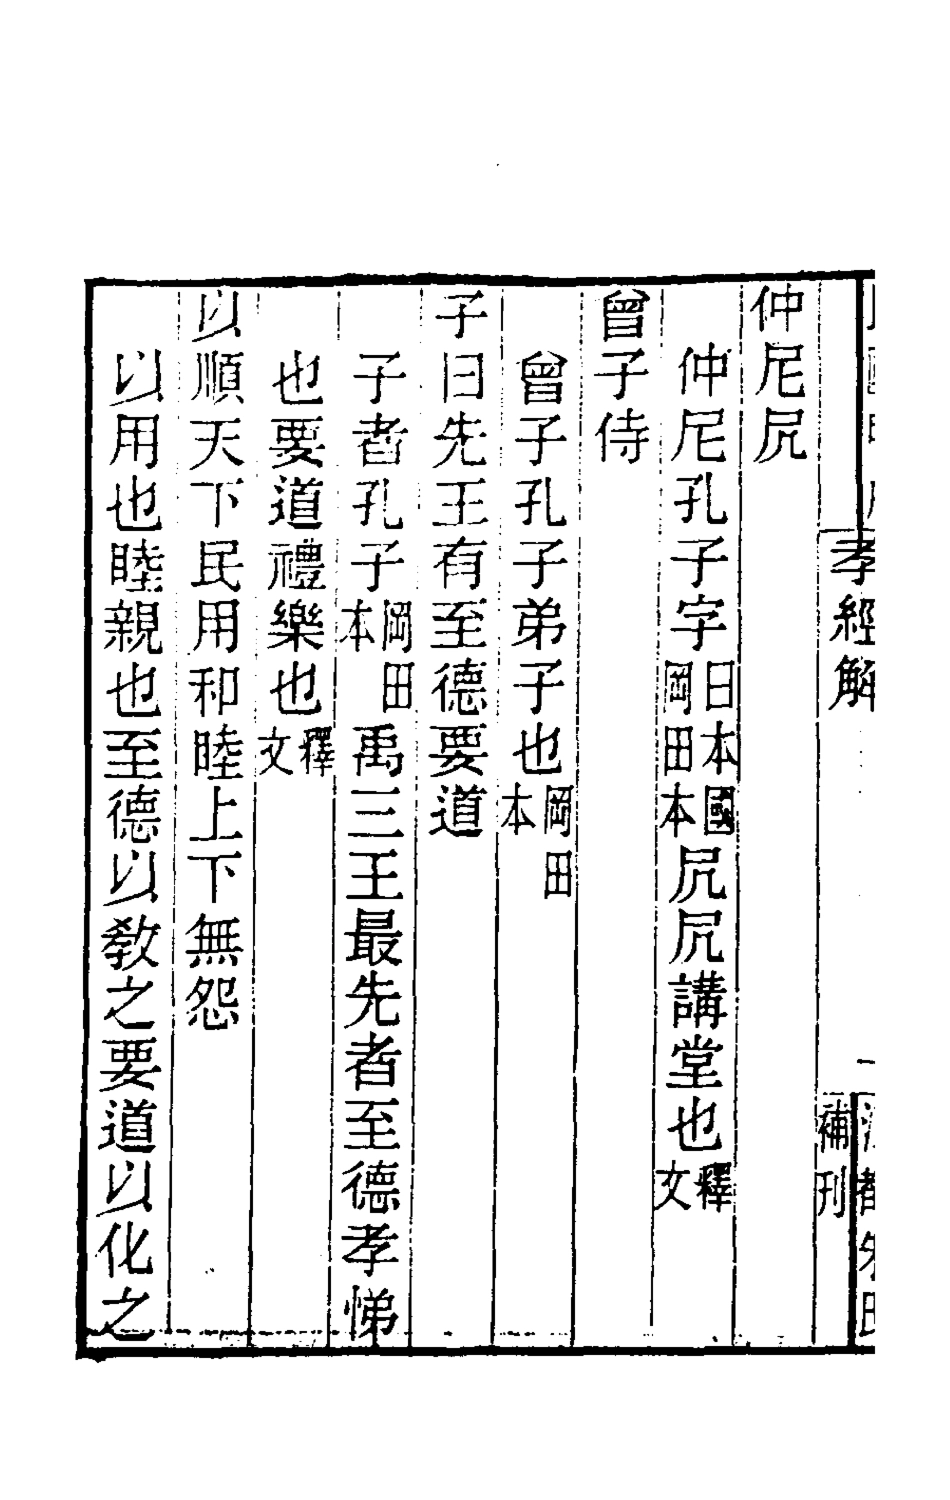 孝經解
一
補刊
仲尼凥
仲尼孔子字日本國岡田本凥凥講堂也釋文
曾子侍
曾子孔子弟子也岡田本
子曰先王有至德要道
子者孔子岡田本禹三王最先者至德孝悌
也要道禮樂也釋文
以順天下民用和睦上下無怨
以用也睦親也至德以敎之要道以化之